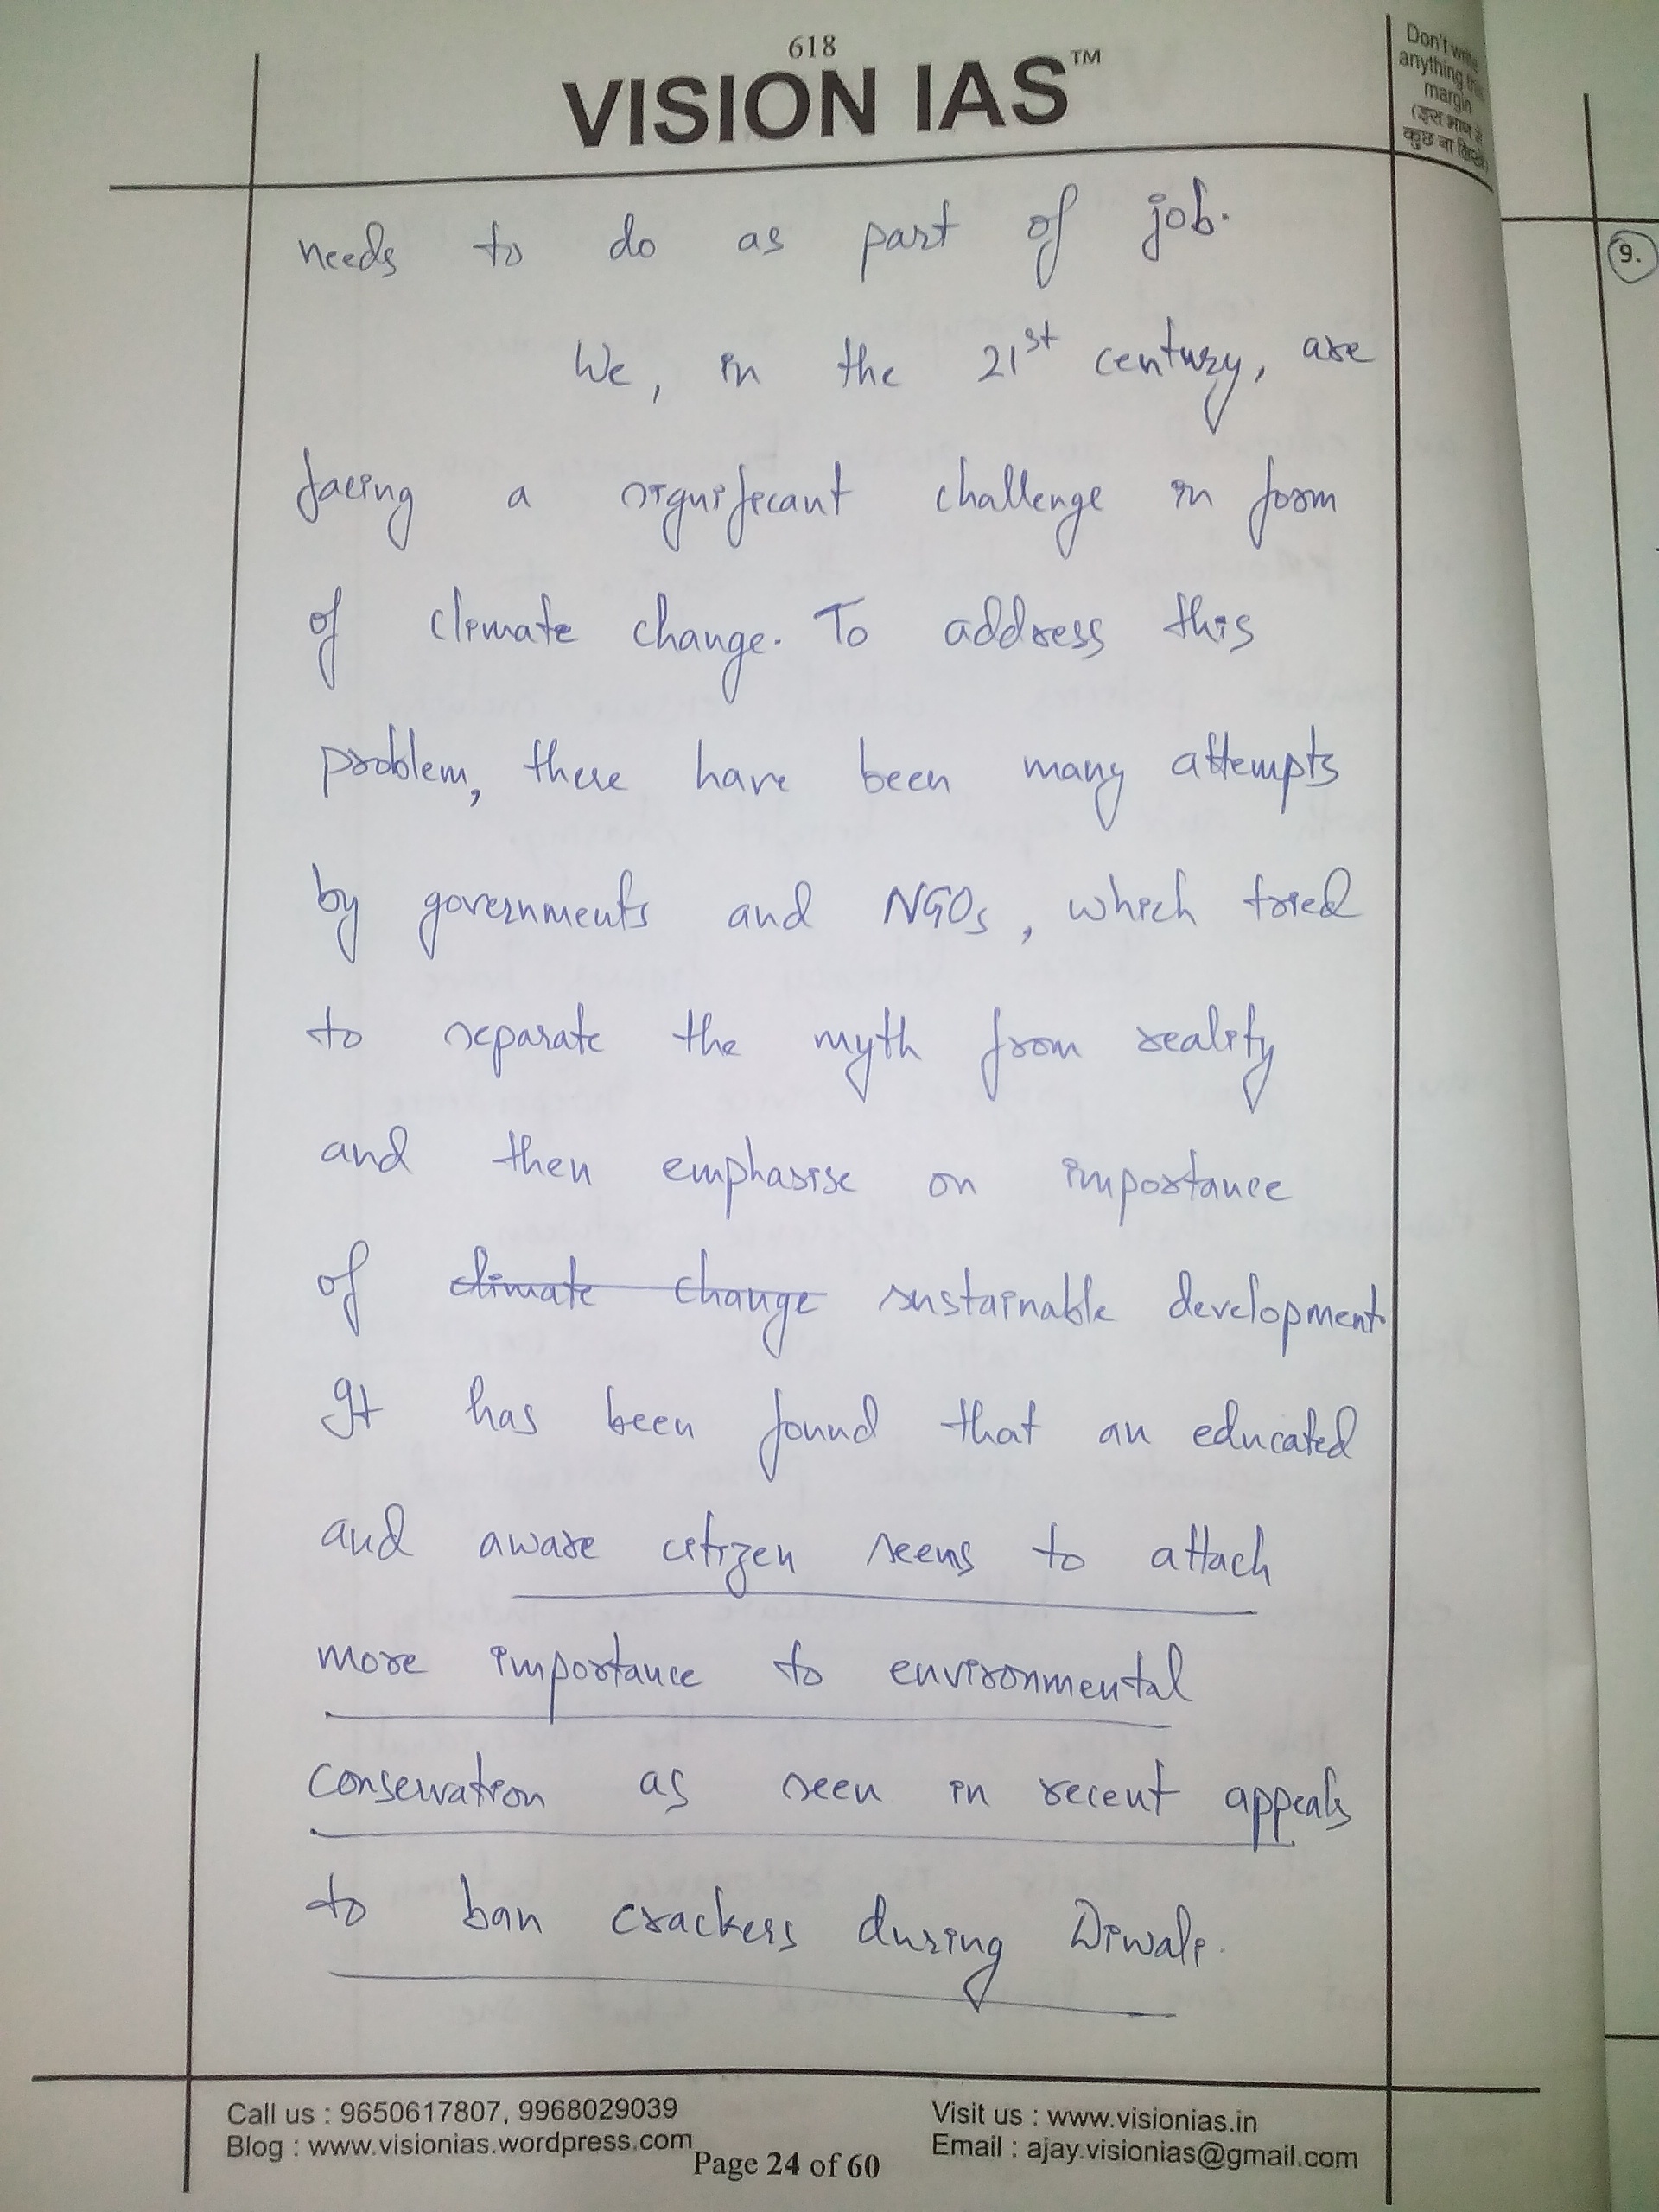 618
VISION IAS™
Don't write
anything this
margin
(इस भाग में
कुछ ना लिखें)
needs to do as part of job.
We, in the 21st century, are
facing a significant challenge in form
of climate change. To address this
problem, there have been many attempts
by governments and NGOs, which tried
to separate the myth from reality
and then emphasise on importance
of climate change sustainable development.
It has been found that an educated
and aware citizen seems to attach
more importance to environmental
conservation as seen in recent appeals
to ban crackers during Diwali.
Call us : 9650617807, 9968029039
Blog : www.visionias.wordpress.com
Page 24 of 60
Visit us : www.visionias.in
Email : ajay.visionias@gmail.com
9.